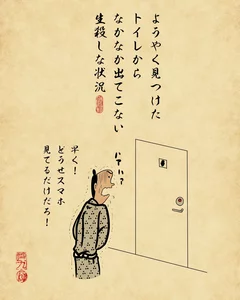 ようやく見つけた
トイレから
なかなか出てこない
生殺しな状況
早く！
どうせスマホ
見てるだけだろ！